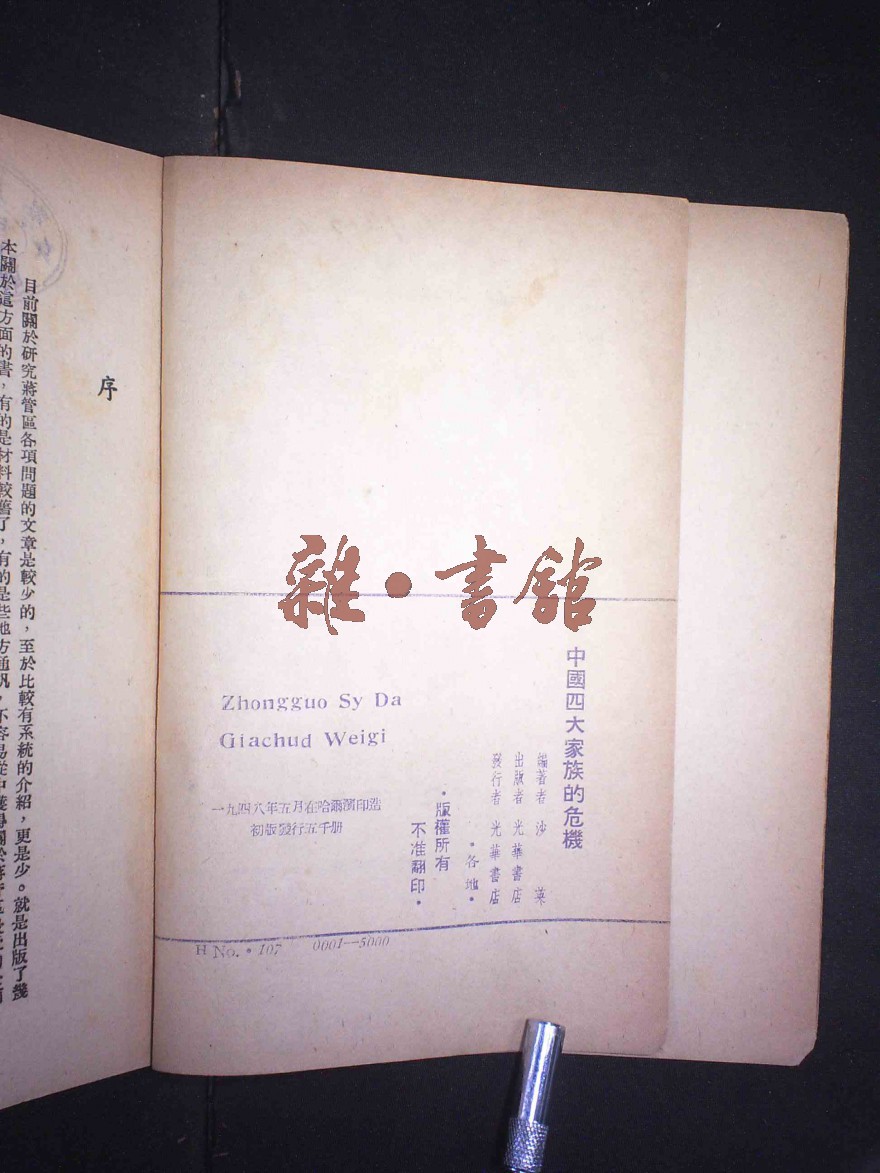 雜•書館
中國四大家族的危機
編著者 沙英
出版者 光華書店
發行者 光華書店
•各地•
•版權所有
不准翻印•
Zhongguo Sy Da
Giachud Weigi
一九四八年五月在哈爾濱印造
初版發行五千册
H No. • 107 0001—5000
序
目前關於研究蔣管區各項問題的文章是較少的，至於比較有系統的介紹，更是少。就是出版了幾
本關於這方面的書，有的是材料較舊了，有的是些地方通訊，不容易從中獲得關於